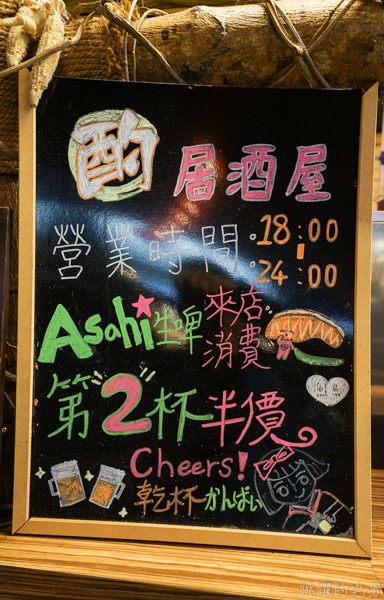 酌 居酒屋
營業時間:18:00
24:00
Asahi生啤 來店
消費
第2杯半價
Cheers!
乾杯 かんぱい
跳躍的宅男